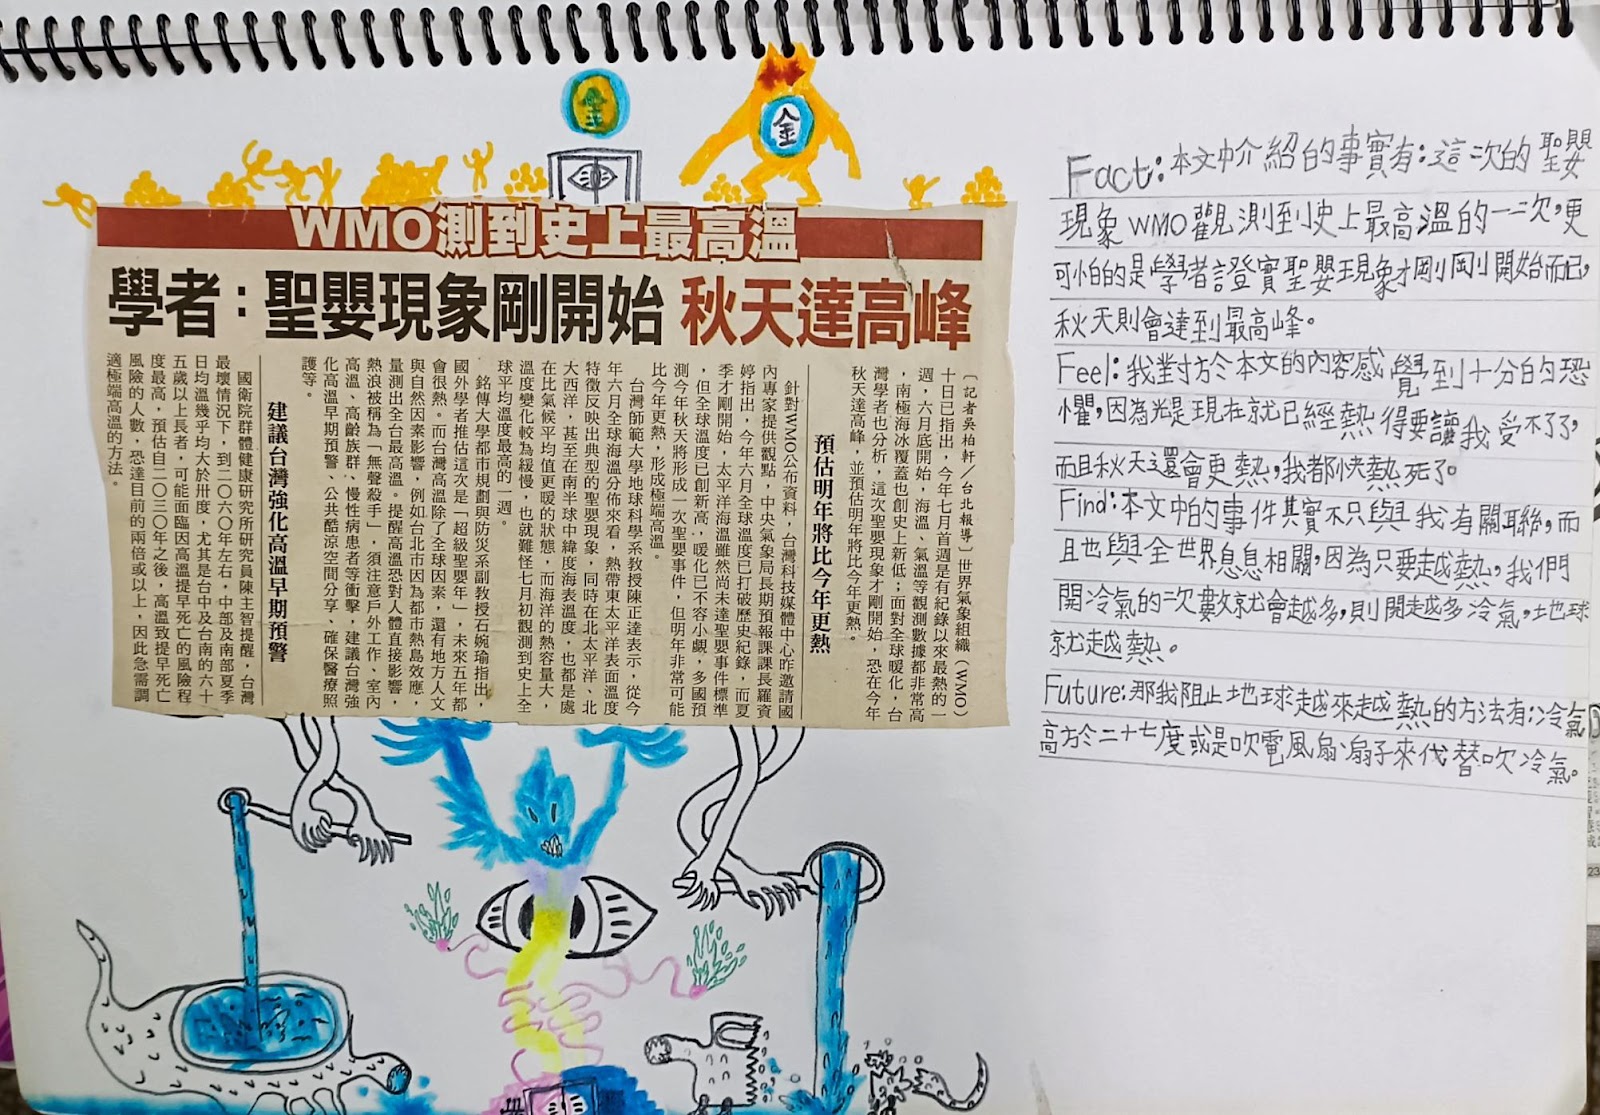 金
金
WMO測到史上最高溫
學者：聖嬰現象剛開始 秋天達高峰
〔記者吳柏軒／台北報導〕世界氣象組織（WMO）
十日已指出，今年七月首週是有紀錄以來最熱的一
週，六月底開始，海溫、氣溫等觀測數據都非常高
，南極海冰覆蓋也創史上新低；面對全球暖化，台
灣學者也分析，這次聖嬰現象才剛開始，恐在今年
秋天達高峰，並預估明年將比今年更熱。
預估明年將比今年更熱
針對WMO公布資料，台灣科技媒體中心昨邀請國
內專家提供觀點，中央氣象局長期預報課課長羅資
婷指出，今年六月全球溫度已打破歷史紀錄，而夏
季才剛開始，太平洋海溫雖然尚未達聖嬰事件標準
，但全球溫度已創新高，暖化已不容小覷，多國預
測今年秋天將形成一次聖嬰事件，但明年非常可能
比今年更熱，形成極端高溫。
台灣師範大學地球科學系教授陳正達表示，從今
年六月全球海溫分佈來看，熱帶東太平洋表面溫度
特徵反映出典型的聖嬰現象，同時在北太平洋、北
大西洋，甚至在南半球中緯度海表溫度，也都是處
在比氣候平均值更暖的狀態，而海洋的熱容量大，
溫度變化較為緩慢，也就難怪七月初觀測到史上全
球平均溫度最高的一週。
銘傳大學都市規劃與防災系副教授石婉瑜指出，
國外學者推估這次是「超級聖嬰年」，未來五年都
會很熱。而台灣高溫除了全球因素，還有地方人文
與自然因素影響，例如台北市因為都市熱島效應，
量測出全台最高溫。提醒高溫恐對人體直接影響，
熱浪被稱為「無聲殺手」，須注意戶外工作、室內
高溫、高齡族群、慢性病患者等衝擊，建議台灣強
化高溫早期預警、公共酷涼空間分享、確保醫療照
護等。
建議台灣強化高溫早期預警
國衛院群體健康研究所研究員陳主智提醒，台灣
最壞情況下，到二〇六〇年左右，中部及南部夏季
日均溫幾乎均大於卅度，尤其是台中及台南的六十
五歲以上長者，可能面臨因高溫提早死亡的風險程
度最高，預估自二〇三〇年之後，高溫致提早死亡
風險的人數，恐達目前的兩倍或以上，因此急需調
適極端高溫的方法。
Fact：本文中介紹的事實有：這一次的聖嬰
現象WMO觀測到史上最高溫的一次，更
可怕的是學者證實聖嬰現象才剛剛開始而已，
秋天則會達到最高峰。
Feel：我對於本文的內容感覺到十分的恐
懼，因為光是現在就已經熱得要讓我受不了了，
而且秋天還會更熱，我都快熱死了。
Find：本文中的事件其實不只與我有關聯，而
且也與全世界息息相關，因為只要越熱，我們
開冷氣的次數就會越多，則開越多冷氣，地球
就越熱。
Future：那我阻止地球越來越熱的方法有：冷氣
高於二十七度或是吹電風扇、扇子來代替吹冷氣。